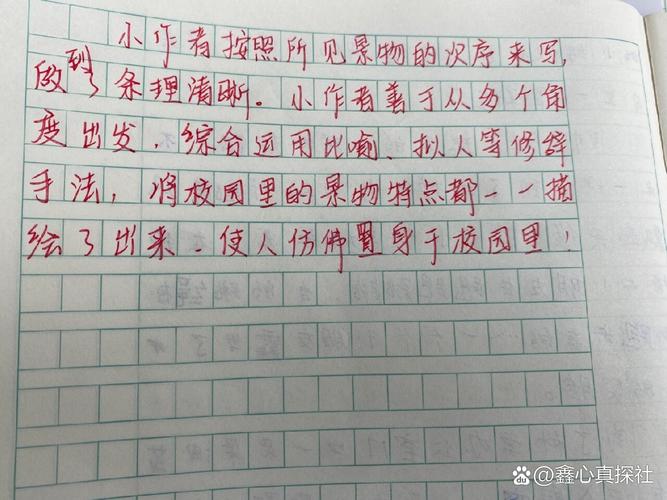 小作者按照所见景物的次序来写,
做到了条理清晰。小作者善于从多个角
度出发,综合运用比喻、拟人等修辞
手法,将校园里的景物特点都一一描
绘了出来,使人仿佛置身于校园里!
du 鑫心真探社